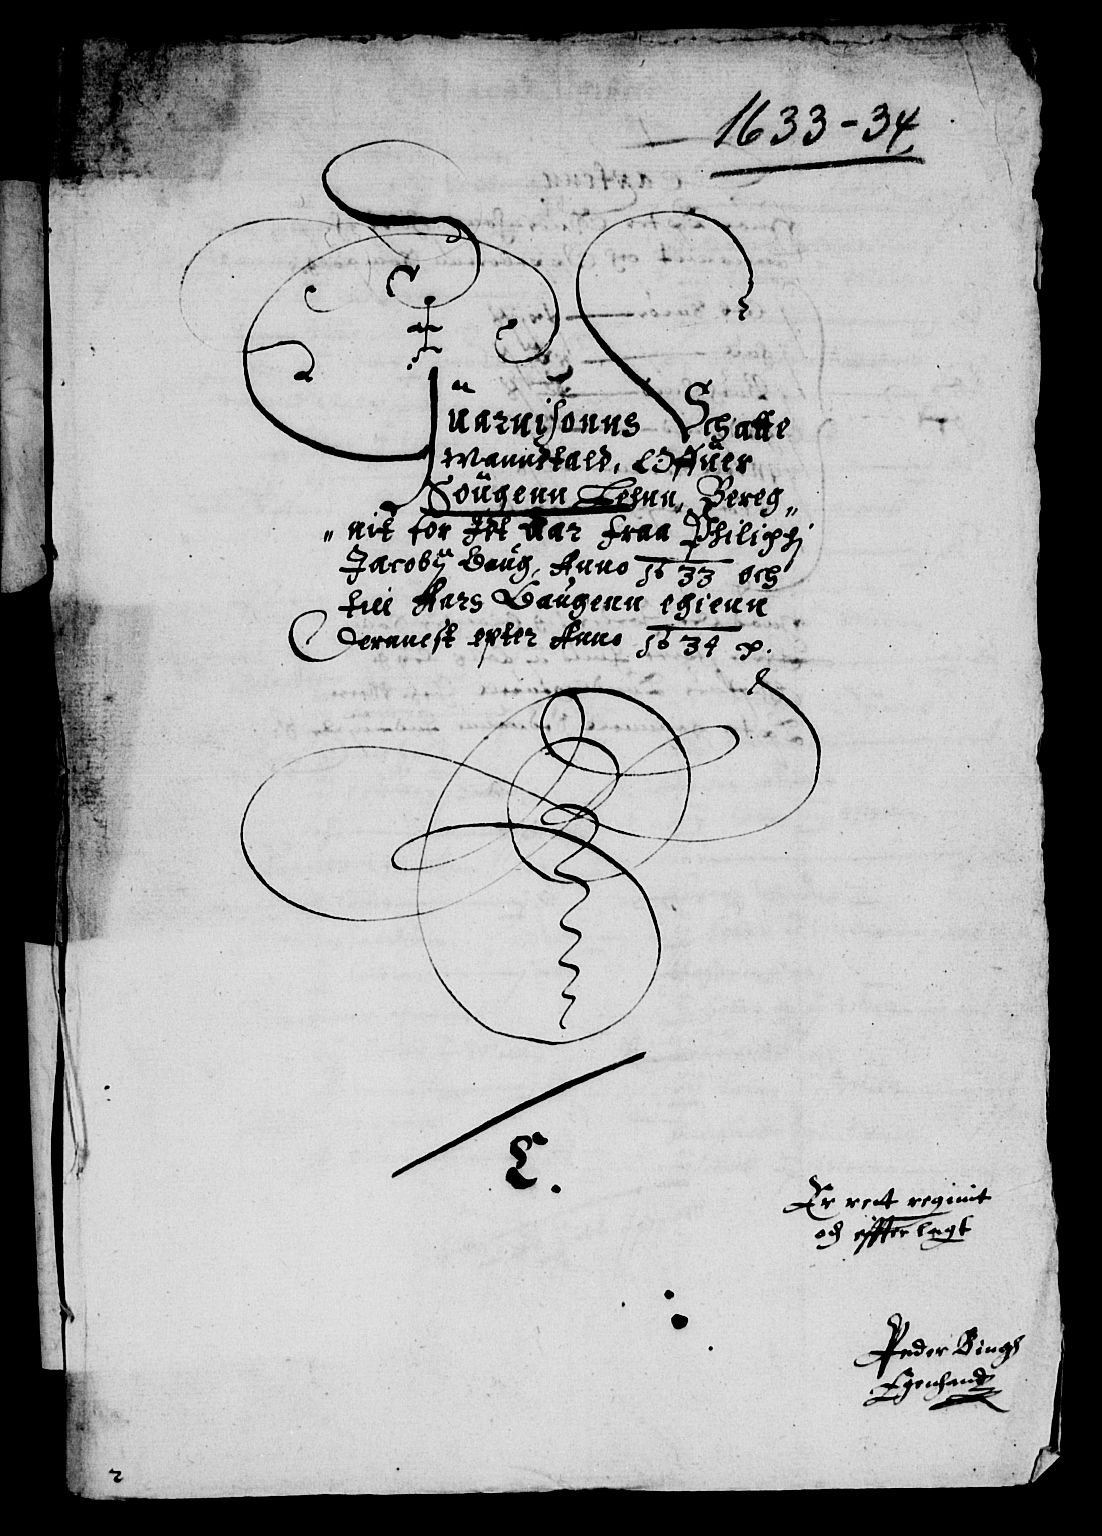 1633-34
Guarnisonns Schatte
Manndtald, Offuer
Sougenn Lehnn, Bereg„
„nit for Itt Aar fraa Philippi
Jacobÿ Daug, Anno 1633 och
till Aars Daugenn egienn
dernnest epter Anno 1634 p.
E.
Er rett reginit
och effterlagt
Peder Bingh
Egenhand
2